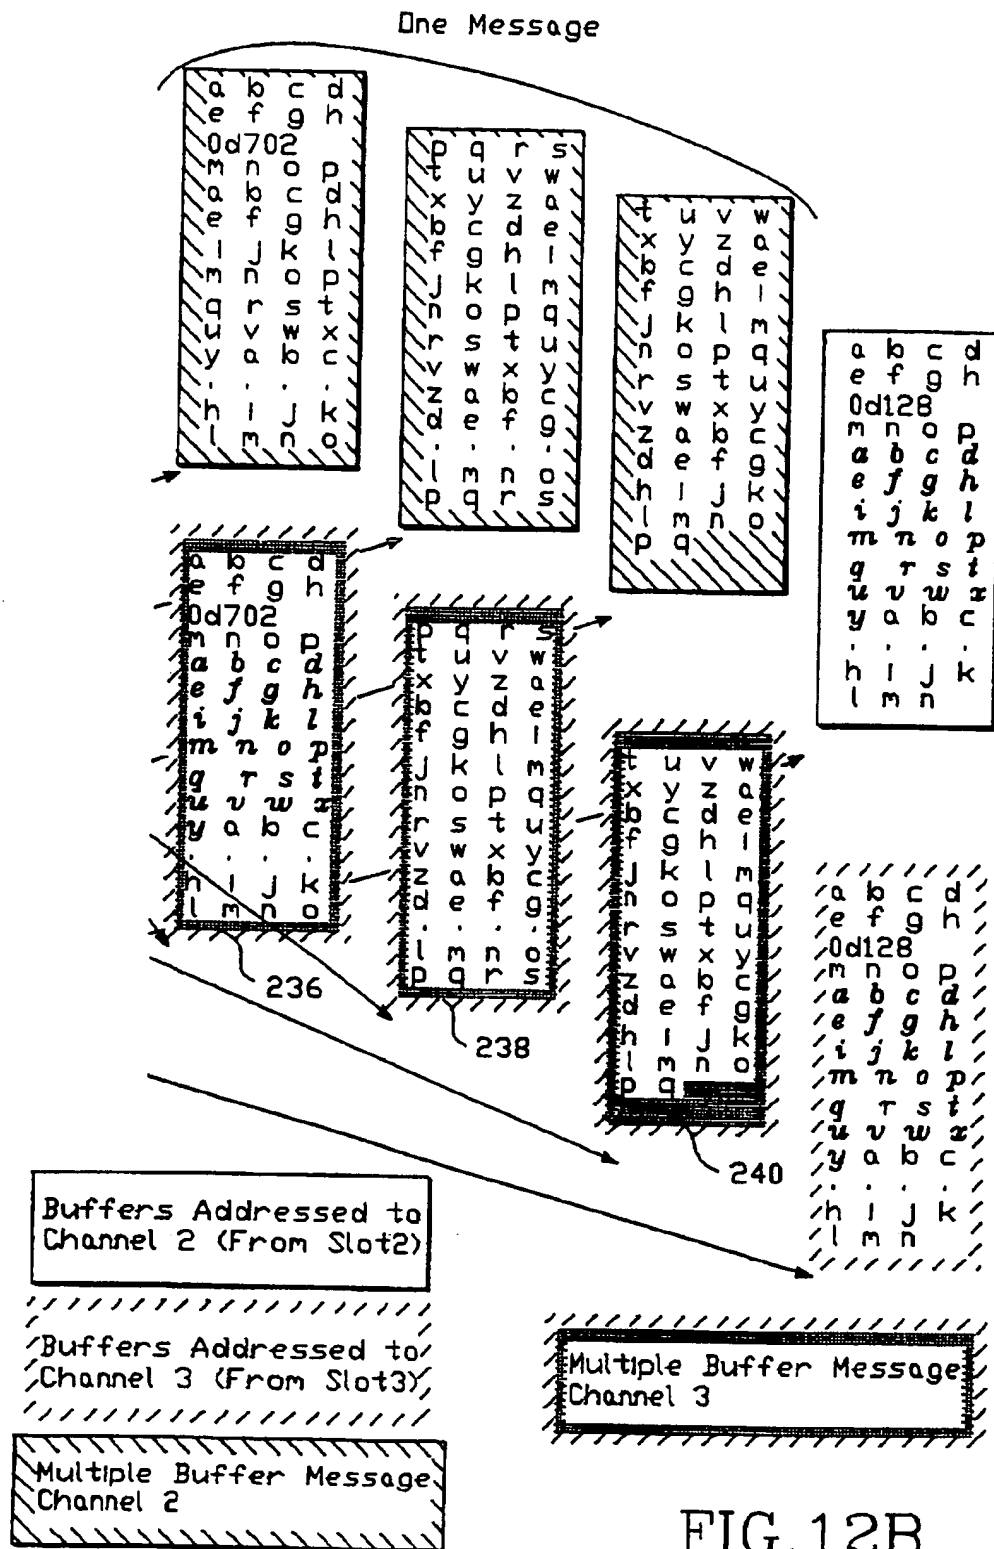 One Message
a b c d
e f g h
0d702
m n o p
a b c d
e f g h
i j k l
m n o p
q r s t
u v w x
y a b c
. . . .
h i j k
l m n o
p q r s
t u v w
x y z a
b c d e
f g h i
j k l m
n o p q
r s t u
v w x y
z a b c
d e f g
. . . .
l m n o
p q r s
t u v w
x y z a
b c d e
f g h i
j k l m
n o p q
r s t u
v w x y
z a b c
d e f g
h i j k
l m n o
p q
a b c d
e f g h
0d128
m n o p
a b c d
e f g h
i j k l
m n o p
q r s t
u v w x
y a b c
. . . .
h i j k
l m n
a b c d
e f g h
0d702
m n o p
a b c d
e f g h
i j k l
m n o p
q r s t
u v w x
y a b c
. . . .
h i j k
l m n o
236
p q r s
t u v w
x y z a
b c d e
f g h i
j k l m
n o p q
r s t u
v w x y
z a b c
d e f g
. . . .
l m n o
p q r s
238
t u v w
x y z a
b c d e
f g h i
j k l m
n o p q
r s t u
v w x y
z a b c
d e f g
h i j k
l m n o
p q
240
a b c d
e f g h
0d128
m n o p
a b c d
e f g h
i j k l
m n o p
q r s t
u v w x
y a b c
. . . .
h i j k
l m n
Buffers Addressed to
Channel 2 (From Slot2)
Buffers Addressed to
Channel 3 (From Slot3)
Multiple Buffer Message
Channel 2
Multiple Buffer Message
Channel 3
FIG. 12B